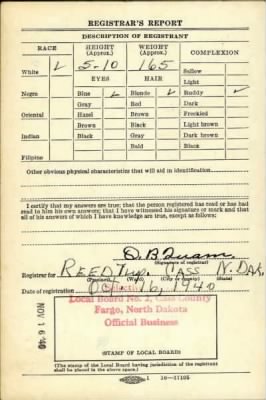 REGISTRAR'S REPORT
DESCRIPTION OF REGISTRANT
RACE HEIGHT (Approx.) WEIGHT (Approx.) COMPLEXION
White ✓ 5-10 165 Sallow
EYES HAIR Light
Negro Blue ✓ Blonde ✓ Ruddy ✓
Gray Red Dark
Oriental Hazel Brown Freckled
Brown Black Light brown
Indian Black Gray Dark brown
Bald Black
Filipino
Other obvious physical characteristics that will aid in identification
I certify that my answers are true; that the person registered has read or has had
read to him his own answers; that I have witnessed his signature or mark and that
all of his answers of which I have knowledge are true, except as follows:
O. B. Quam
(Signature of registrar)
Registrar for REED Twp. CASS N. DAK.
(City or county) (State)
Date of registration Oct. 16, 1940
NOV 16 40
Local Board No. 2, Cass County
Fargo, North Dakota
Official Business
(STAMP OF LOCAL BOARD)
(The stamp of the Local Board having jurisdiction of the registrant
shall be placed in the above space.)
16-17105